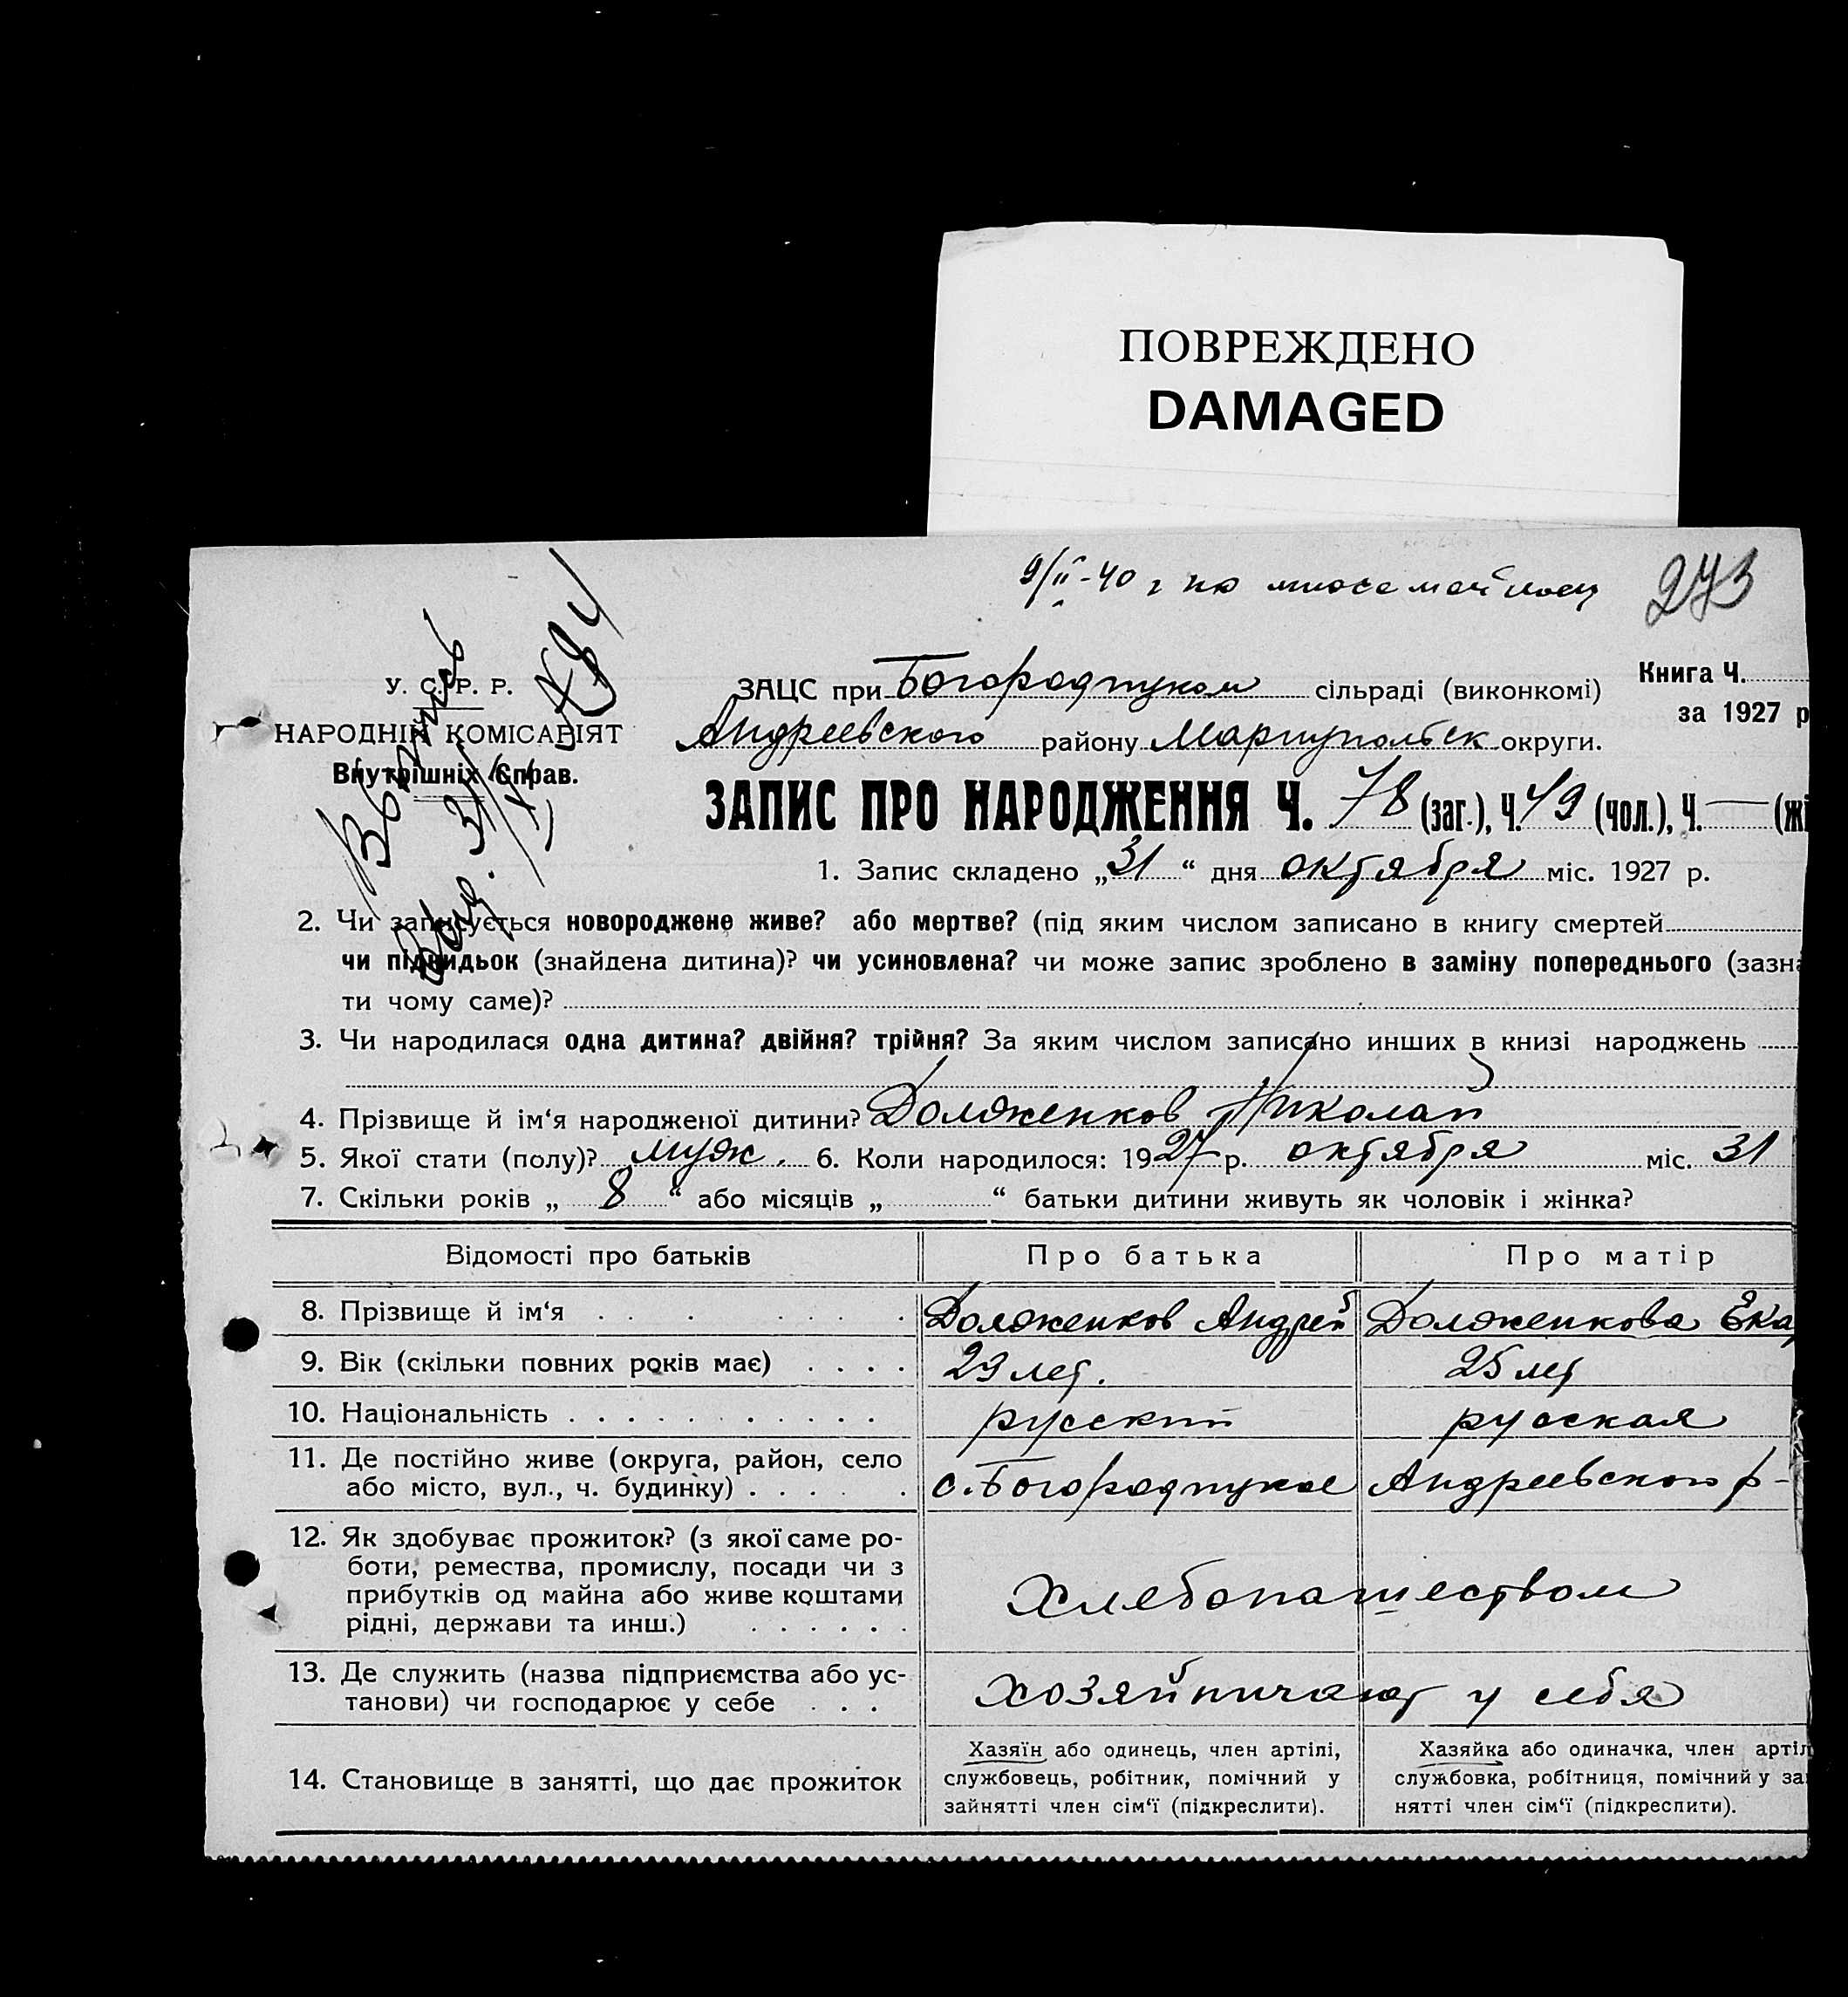 ПОВРЕЖДЕНО
DAMAGED
9/II-40 г по многосемейному
273
Книга Ч.
за 1927 р
У. С. Р. Р.
НАРОДНІЙ КОМІСАРІЯТ
Внутрішніх Справ.
ЗАЦС при Богородицком сільраді (виконкомі)
Андреевского району Мариупольск округи.
ЗАПИС ПРО НАРОДЖЕННЯ Ч. 78 (заг.), Ч. 49 (чол.), Ч. — (жі
1. Запис складено „31“ дня октября міс. 1927 р.
2. Чи записується новороджене живе? або мертве? (під яким числом записано в книгу смертей
чи підкидьок (знайдена дитина)? чи усиновлена? чи може запис зроблено в заміну попереднього (зазна
ти чому саме)?
3. Чи народилася одна дитина? двійня? трійня? За яким числом записано инших в книзі народжень
4. Прізвище й ім‘я народженої дитини? Долженков Николай
5. Якої стати (полу)? муж. 6. Коли народилося: 1927 р. октября міс. 31
7. Скільки років „ 8 “ або місяців „ “ батьки дитини живуть як чоловік і жінка?
Відомості про батьків Про батька Про матір
8. Прізвище й ім‘я Долженков Андрей Долженкова Ека
9. Вік (скільки повних років має) 29 лет. 25 лет
10. Національність русский русская
11. Де постійно живе (округа, район, село
або місто, вул., ч. будинку) с. Богородицкое Андреевского р-
12. Як здобуває прожиток? (з якої саме ро-
боти, ремества, промислу, посади чи з
прибутків од майна або живе коштами
рідні, держави та инш.)
Хлебопашеством
13. Де служить (назва підприємства або ус-
танови) чи господарює у себе
хозяйничают у себя
14. Становище в занятті, що дає прожиток
Хазяїн або одинець, член артілі,
службовець, робітник, помічний у
зайнятті член сім‘ї (підкреслити).
Хазяйка або одиначка, член артіл
службовка, робітниця, помічний у за
нятті член сім‘ї (підкреслити).